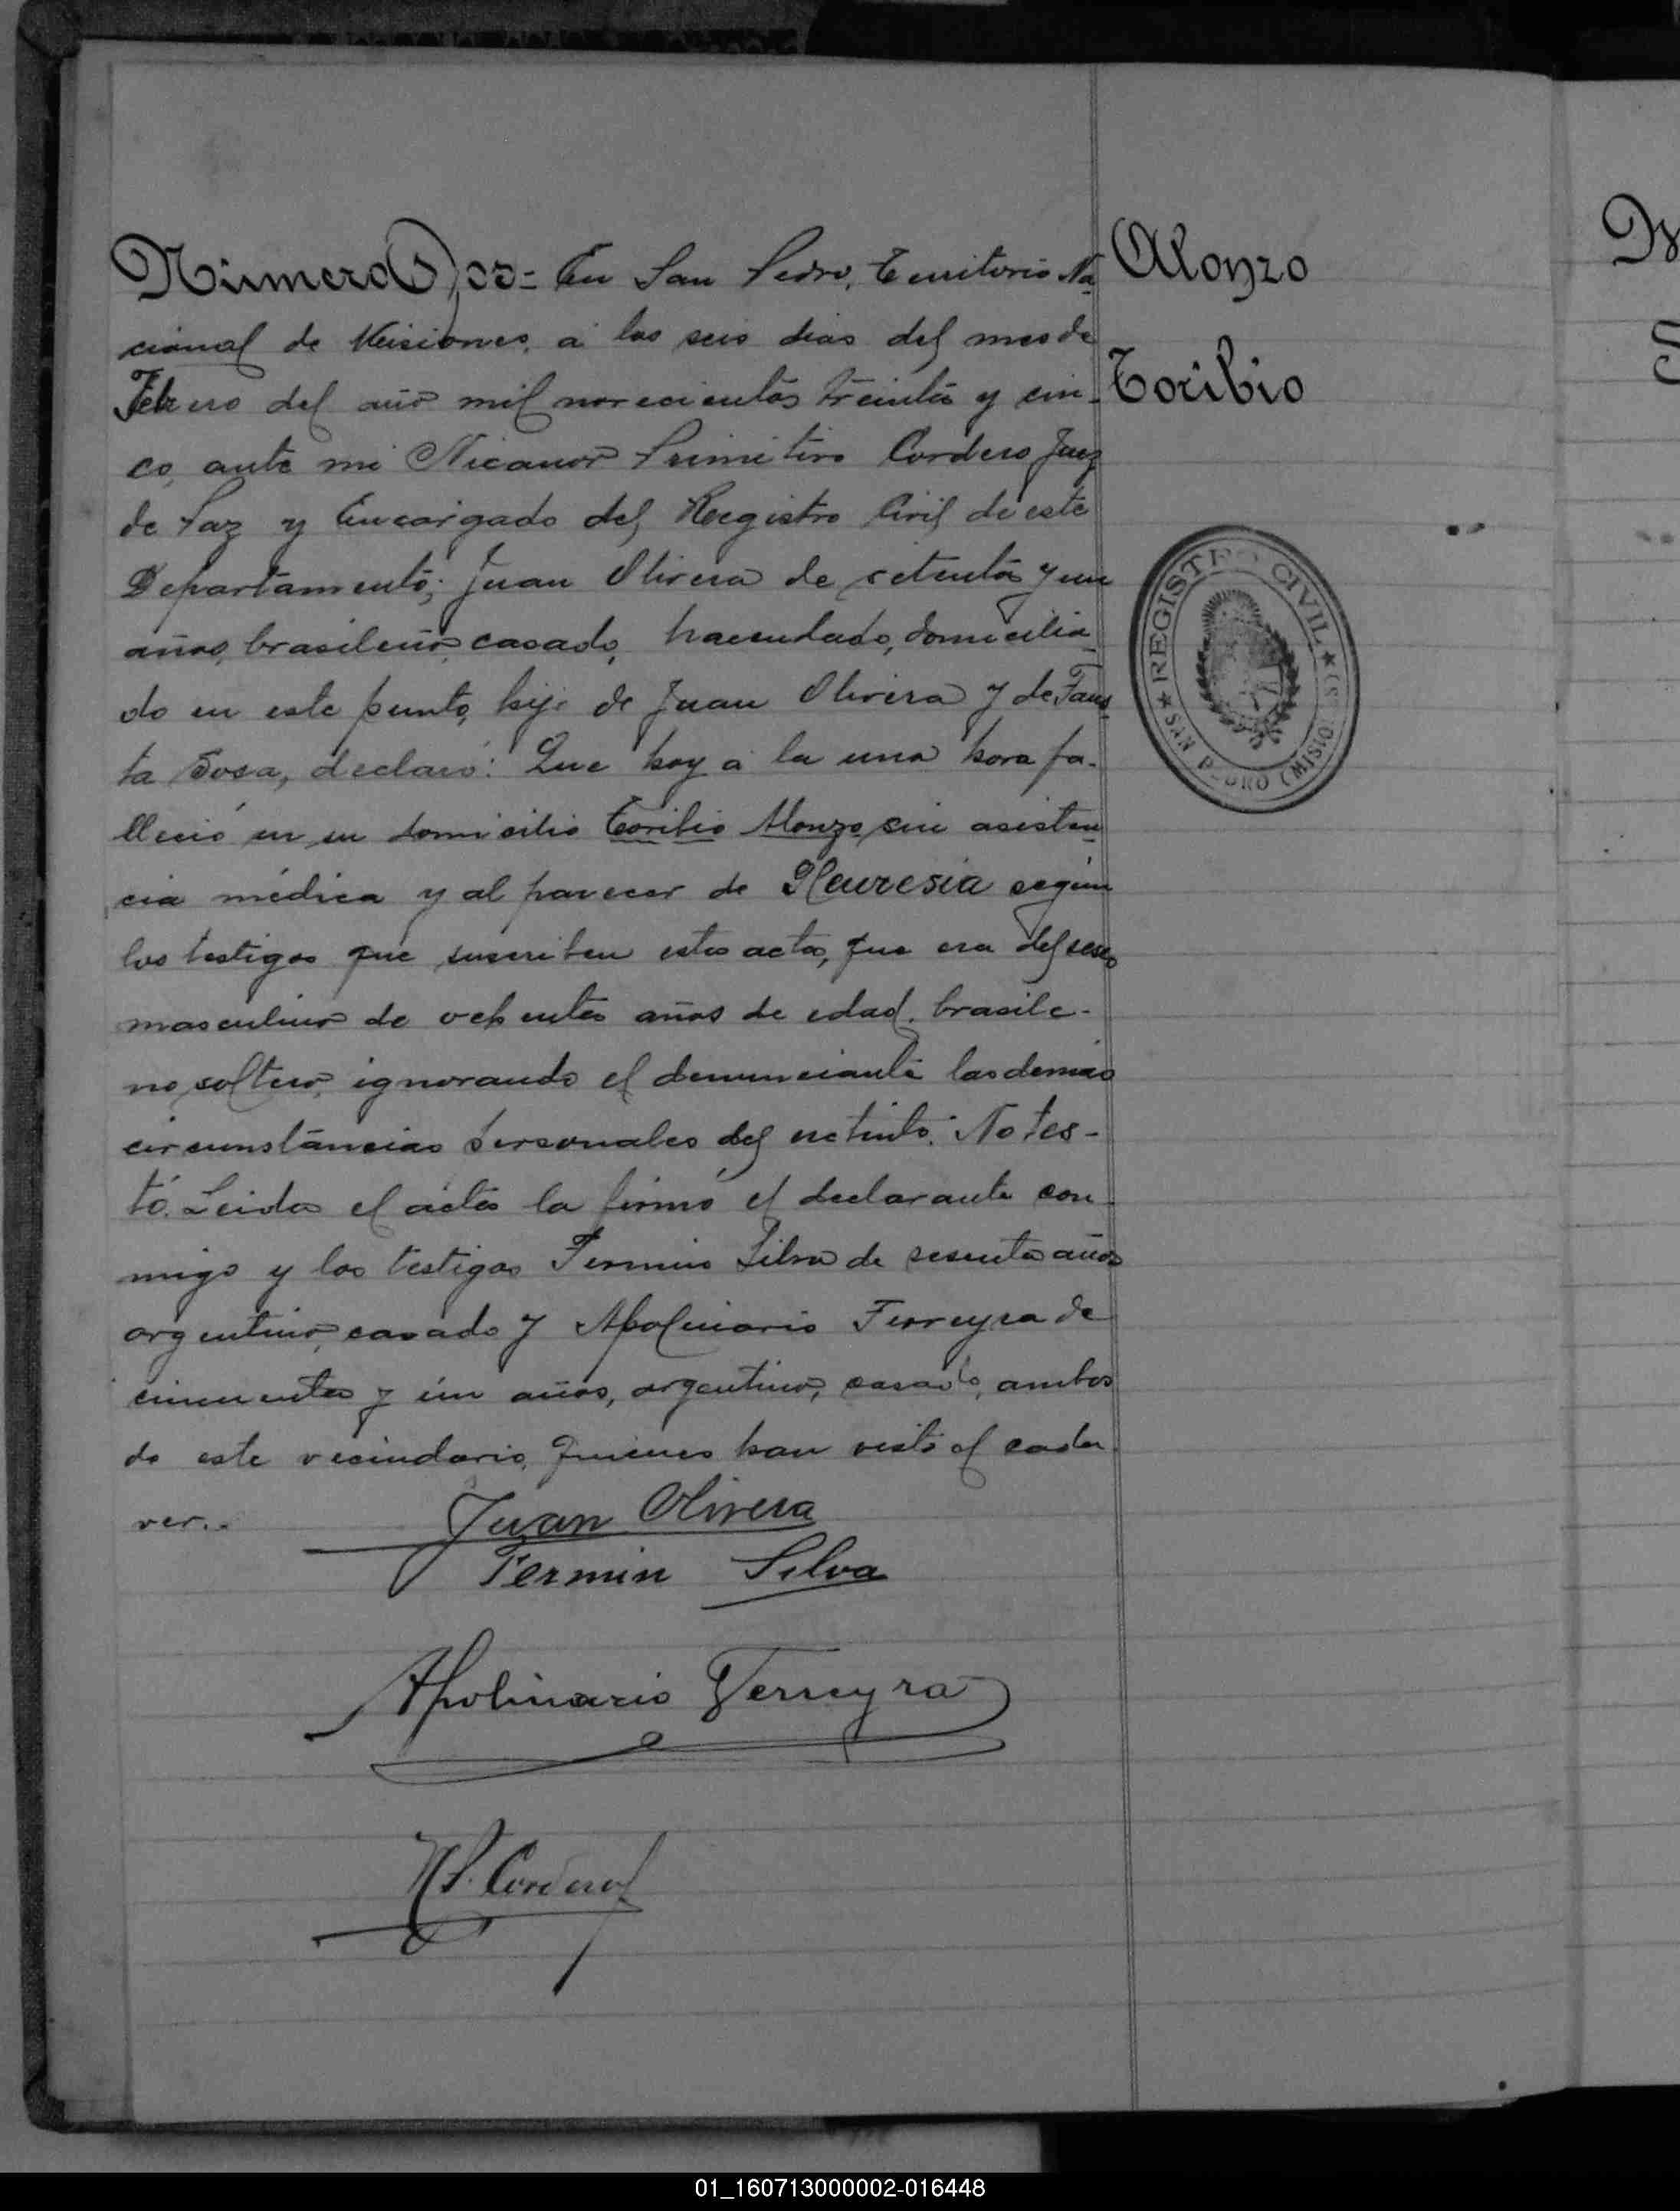 Número Dos= En San Pedro, Territorio Na
cional de Misiones, a los seis dias del mes de
Febrero del año mil novecientos treinta y cin-
co, ante mi Nicanor Primitivo Cordero Juez
de Paz y Encargado del Registro Civil de este
Departamento; Juan Olivera de setenta y un
años, brasileño, casado, hacendado, domicilia_
do en este punto, hijo de Juan Olivera y de Faus
ta Sosa, declaró: Que hoy a la una hora fa-
lleció en su domicilio Toribio Alonzo, sin asisten
cia médica y al parecer de Pleuresia según
los testigos que suscriben esta acta, que era del sexo
masculino de ochenta años de edad, brasile-
no, soltero, ignorando el denunciante las demás
circunstáncias personales del extinto. No tes-
tó. Leida el acta la firmó el declarante con
migo y los testigos Fermin Silva de sesenta años
argentino, casado y Apolinario Ferreyra de
cincuenta y un años, argentino, casado, ambos
de este vecindario, quienes han visto el cada
ver.-
Juan Olivera
Fermin Silva
Apolinario Ferreyra
N P. Cordero
Alonzo
Toribio
REGISTRO CIVIL
SAN PEDRO (MISIO
01_160713000002-016448